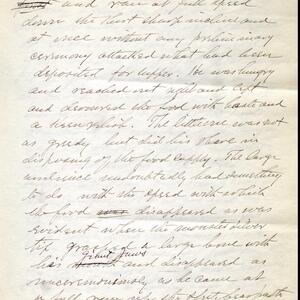 and ran at full speed
down the first sharp incline and
at once without any preliminary
ceremony attacked what had been
deposited for supper. He was hungry
and reached out right and left
and devoured the food with haste and
a keen relish. The little one was not
as greedy but did his share in
disposing of the food supply. The large
audience undoubtedly had something
to do with the speed with which
the food disappeared as was
evident when the monster silver
tip grasped a large bone with
his giant jaws and disappeared as
unceremoniously as he came at
full up the